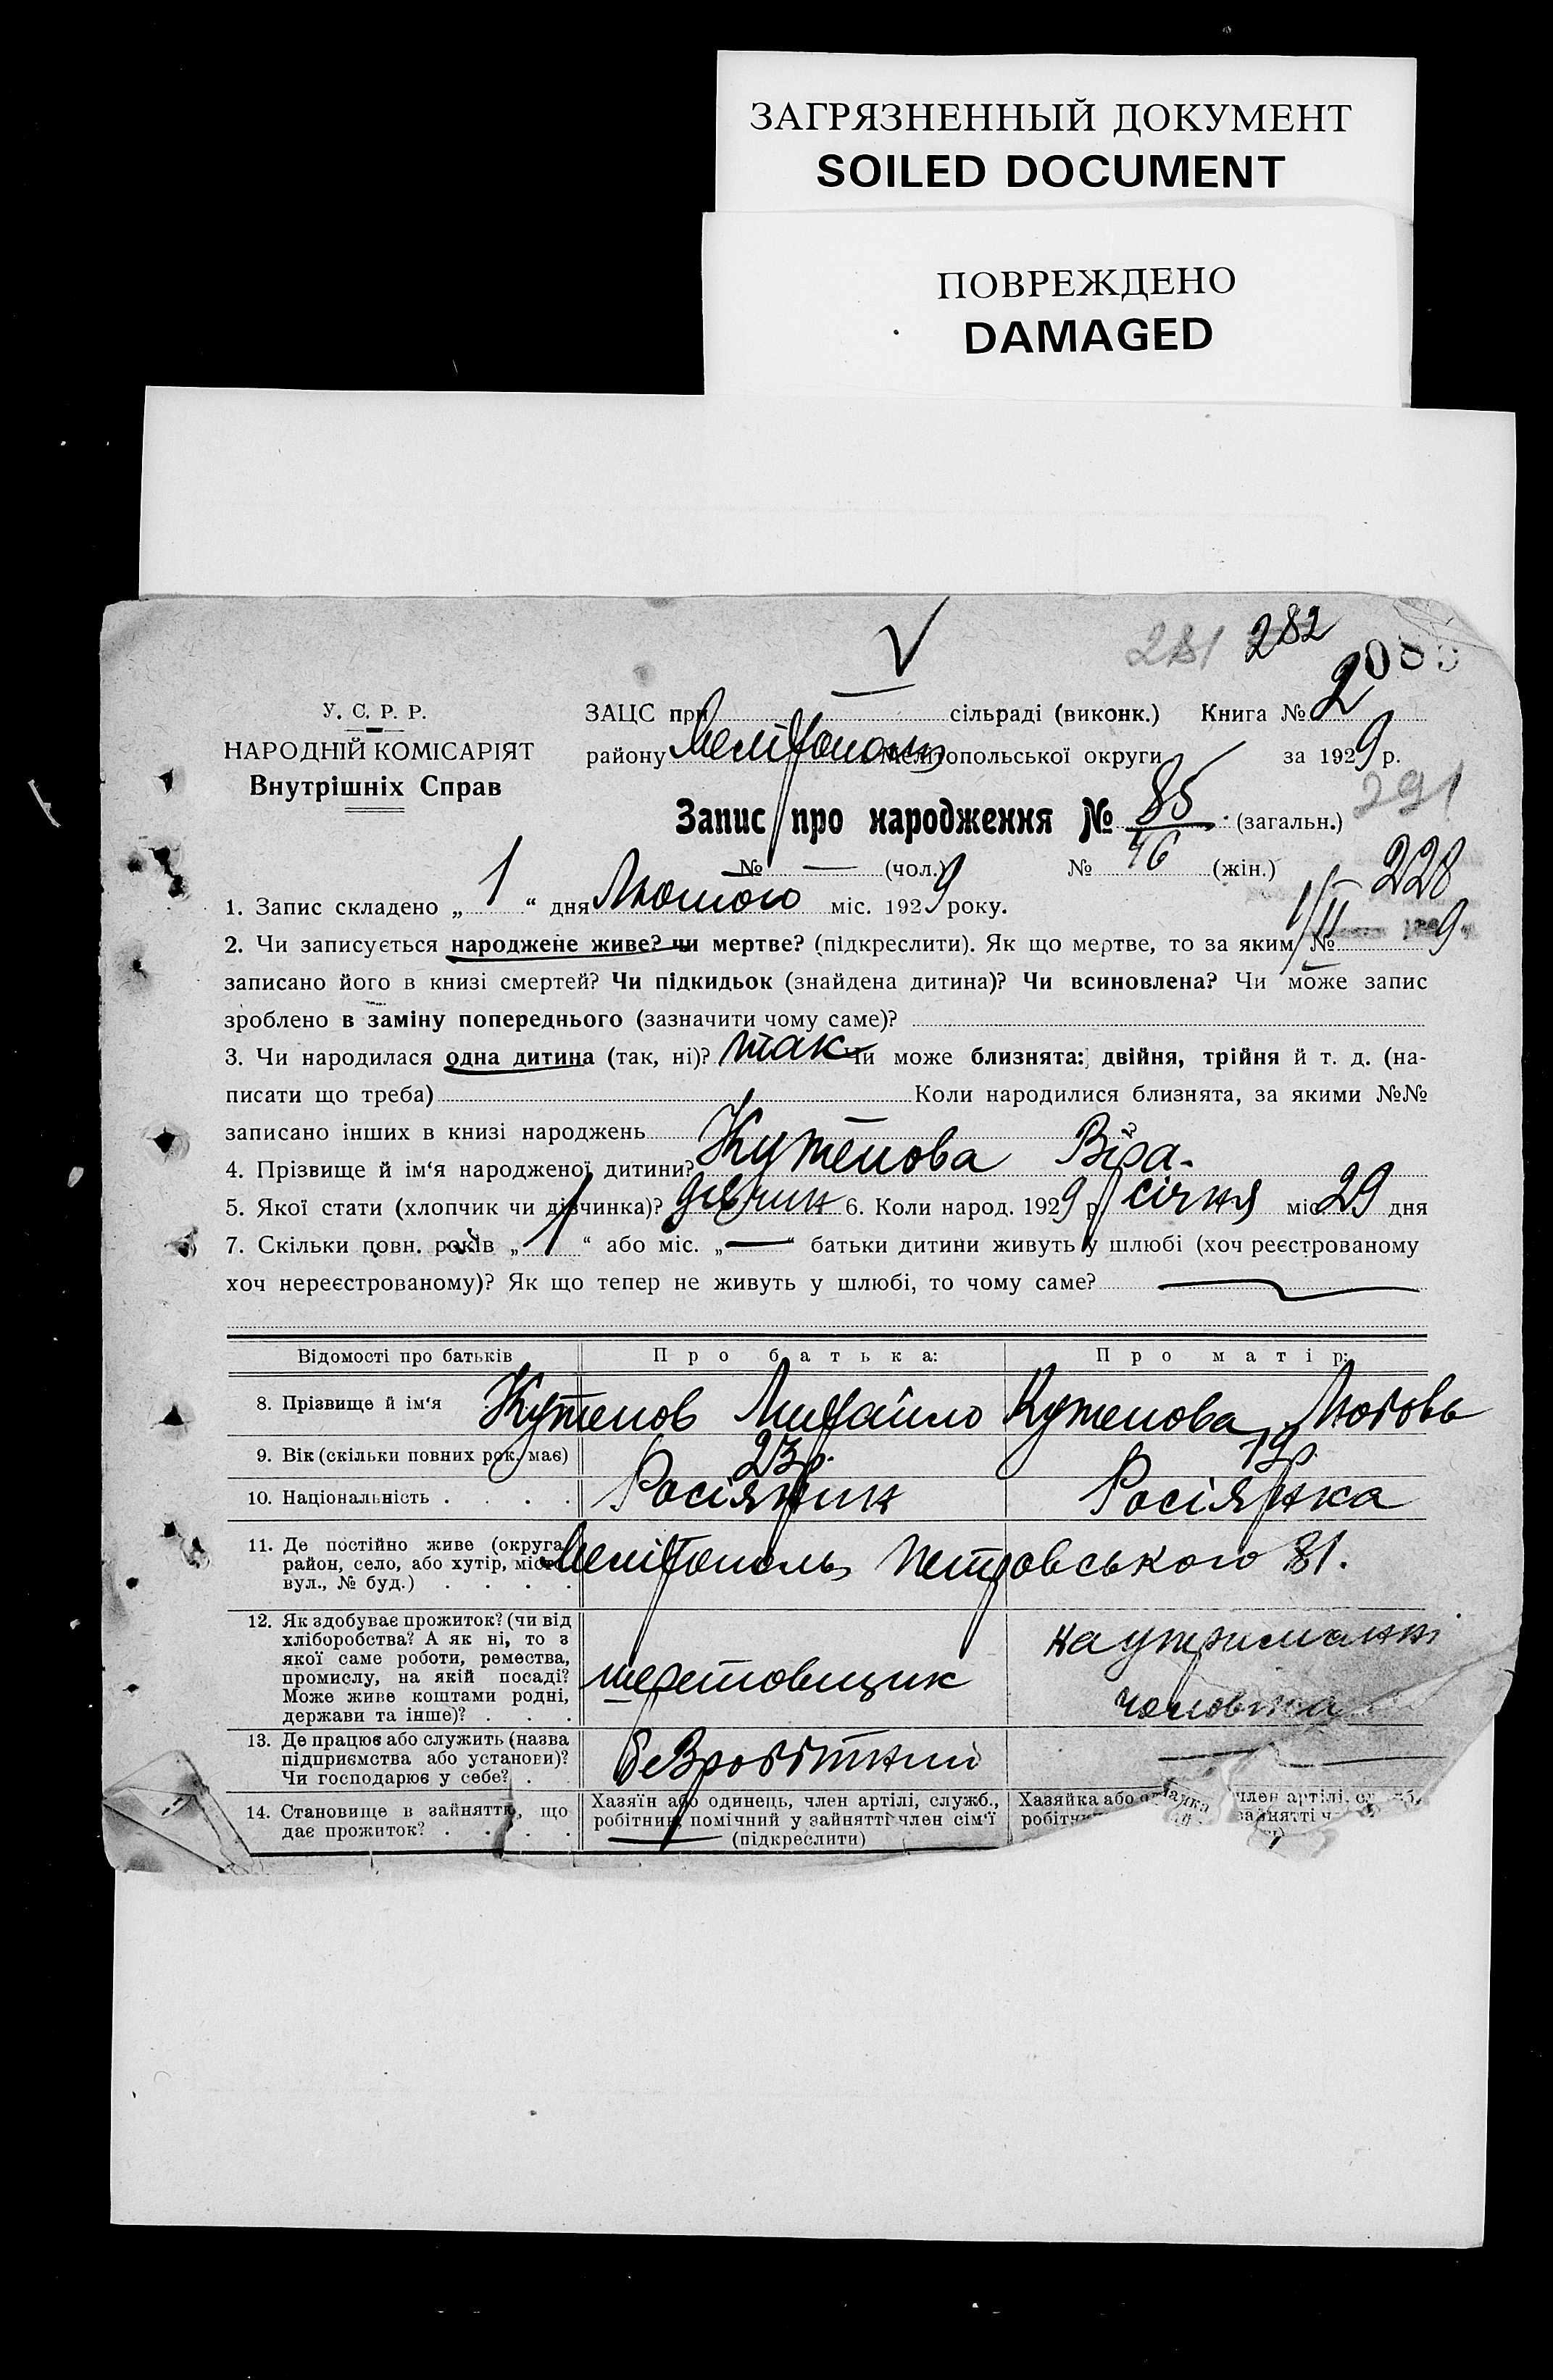 ЗАГРЯЗНЕННЫЙ ДОКУМЕНТ
SOILED DOCUMENT
ПОВРЕЖДЕНО
DAMAGED
281 282
У. С. Р. Р.
НАРОДНІЙ КОМІСАРІЯТ
Внутрішніх Справ
ЗАЦС при сільраді (виконк.) Книга № 2
району Мелітополь Мелітопольської округи за 1929 р.
291
Запис про народження № 85 (загальн.)
№ — (чол.) № 46 (жін.)
228
1. Запис складено „ 1 “ дня Лютого міс. 1929 року.
1/II 9
2. Чи записується народжене живе? чи мертве? (підкреслити). Як що мертве, то за яким №
записано його в книзі смертей? Чи підкидьок (знайдена дитина)? Чи всиновлена? Чи може запис
зроблено в заміну попереднього (зазначити чому саме)?
3. Чи народилася одна дитина (так, ні)? так Чи може близнята: двійня, трійня й т. д. (на-
писати що треба) Коли народилися близнята, за якими №№
записано інших в книзі народжень
4. Прізвище й ім‘я народженої дитини? Кутепова Віра.
5. Якої стати (хлопчик чи дівчинка)? дівчин 6. Коли народ. 1929 р. січня міс. 29 дня
7. Скільки повн. років „ 1 “ або міс. „ — “ батьки дитини живуть у шлюбі (хоч реєстрованому
хоч нереєстрованому)? Як що тепер не живуть у шлюбі, то чому саме?
Відомості про батьків Про батька: Про матір:
8. Прізвище й ім‘я Кутепов Михайло Кутепова Любовь
9. Вік (скільки повних рок. має) 23 р. 19 р.
10. Національність . . . . Росіянин Росіянка
11. Де постійно живе (округа,
район, село, або хутір, місто,
вул., № буд.) . . . . Мелітополь Петровського 81.
12. Як здобуває прожиток? (чи від
хліборобства? А як ні, то з
якої саме роботи, ремества,
промислу, на якій посаді?
Може живе коштами родні,
держави та інше)? . . . шерстовщик на утриманні
чоловіка
13. Де працює або служить (назва
підприємства або установи)?
Чи господарює у себе? . безробітний —
14. Становище в зайнятті, що
дає прожиток? . . . .
Хазяїн або одинець, член артілі, служб.,
робітник, помічний у зайнятті член сім‘ї
(підкреслити)
Хазяйка або член артілі,
зайнятті